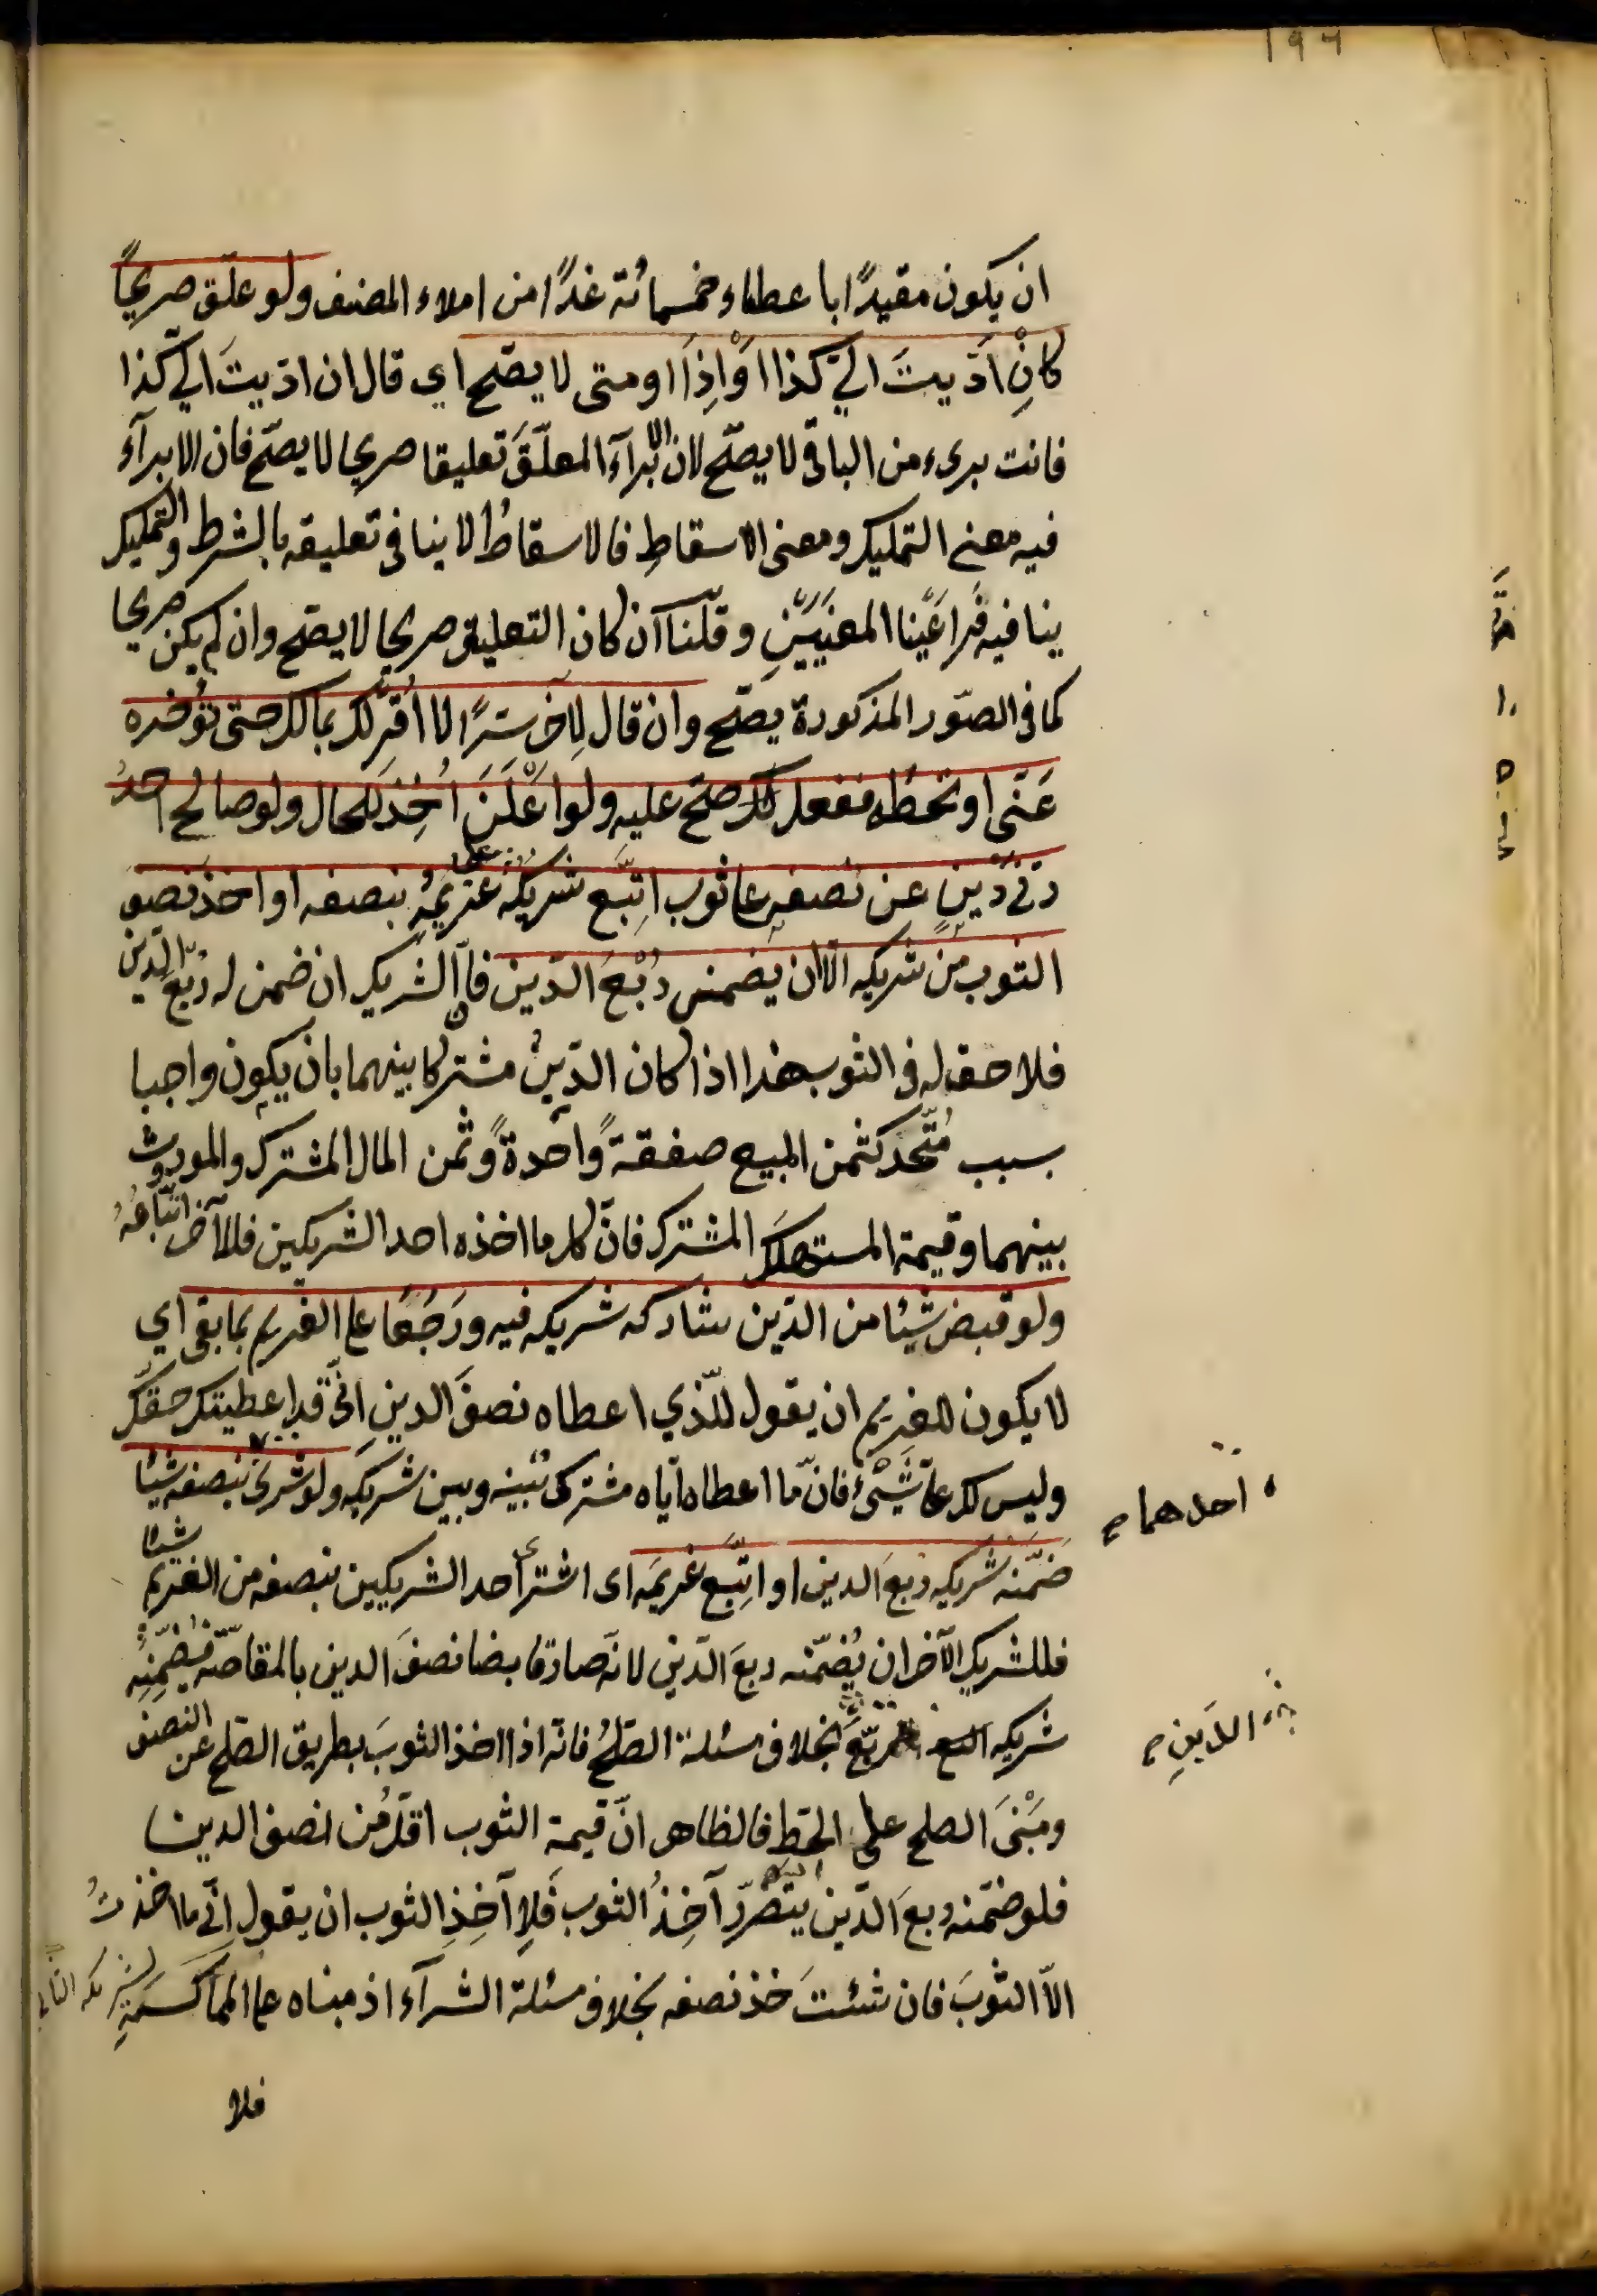 ۱۹۶
ان يكون مقيدًا باعطاء خمسمائة غدًا من املاء المصنف ولو علّق صريحًا
كانِ ادّيتَ اليّ كذا اَوْ اِذَا او متى لا يصّح اي قال ان ادّيتَ اليّ كذا
فانت بريء من الباقى لا يصحّ لان الابرآءَ المعلّقَ تعليقا صريحا لا يصحّ فان الابرآء
فيه معنى التمليك ومعنى الاسقاطِ فالاسقاطُ لا ينافى تعليقه بالشرط والتمليك
ينافيه فَراعَيْنا المعنيَيْنِ وقلنا ان كان التعليق صريحا لا يصحّ وان لم يكن صريحا
كما فى الصّور المذكورة يصحّ وان قال لِآخر سرًّا لا اُقرّ لك بمالك حتى تؤخره
عَنّى او تحطّه ففعل صحّ عليه ولو اَعْلَنَ اُخِذَ للحال ولو صالح احدُ
ربّى دَيْنٍ عن نصفه على ثوب اِتّبع شريكُهُ غريمَهُ بنصفه او اخذ نصف
الثوب من شريكه الّا ان يضمن رُبْعَ الدّين فانّ الشريك ان ضمن له رُبْعَ الدّين
فلا حق له فى الثوب هذا اذا كان الدّينُ مشتركا بينهما بان يكون واجبا
بسبب مُتّحد كثمن المبيع صفقةً واحدةً وثمن المال المشترك والموروث
بينهما وقيمة المستهلَك المشترك فانّ كل ما اخذه احد الشريكين فللآخر اتّباعُهُ
ولو قبض شيئا من الدّين شاركه شريكه فيه ورَجَعَا على الغريم بما بقى اي
لا يكون للغريم ان يقول للّذي اعطاه نصفَ الدين انّى قد اعطيتك حقّك
وليس لك علىّ شَيْءٌ فانّ ما اعطاه ايّاه مشترك بينه وبين شريكه ولو شرى بنصفه شيئا
ضَمّنَهُ شريكه ربعَ الدين او اتّبَع غريمَه اى اشترى احد الشريكين بنصفه من الغريم شيئا
فللشريك الآخر ان يُضمّنه ربعَ الدّين لانه صار قابضا نصفَ الدين بالمقاصّة فيُضمّنُه
شريكه الربعَ بخلاف مسئلة الصّلح فانّه اذا اخذ الثوبَ بطريق الصّلح عن النصف
ومَبْنَى الصلح على الحطّ فالظاهر انّ قيمة الثوب اقلّ من نصف الدين
فلو ضمّنه ربعَ الدّين يتضرّر آخِذُ الثوب فَلِآخِذِ الثوب ان يقول انّى ما اخذتُ
الّا الثوبَ فان شئتَ خذ نصفه بخلاف مسئلة الشرآء اذ مبناه على المماكسة
فلا
احدهما
الدَينِ